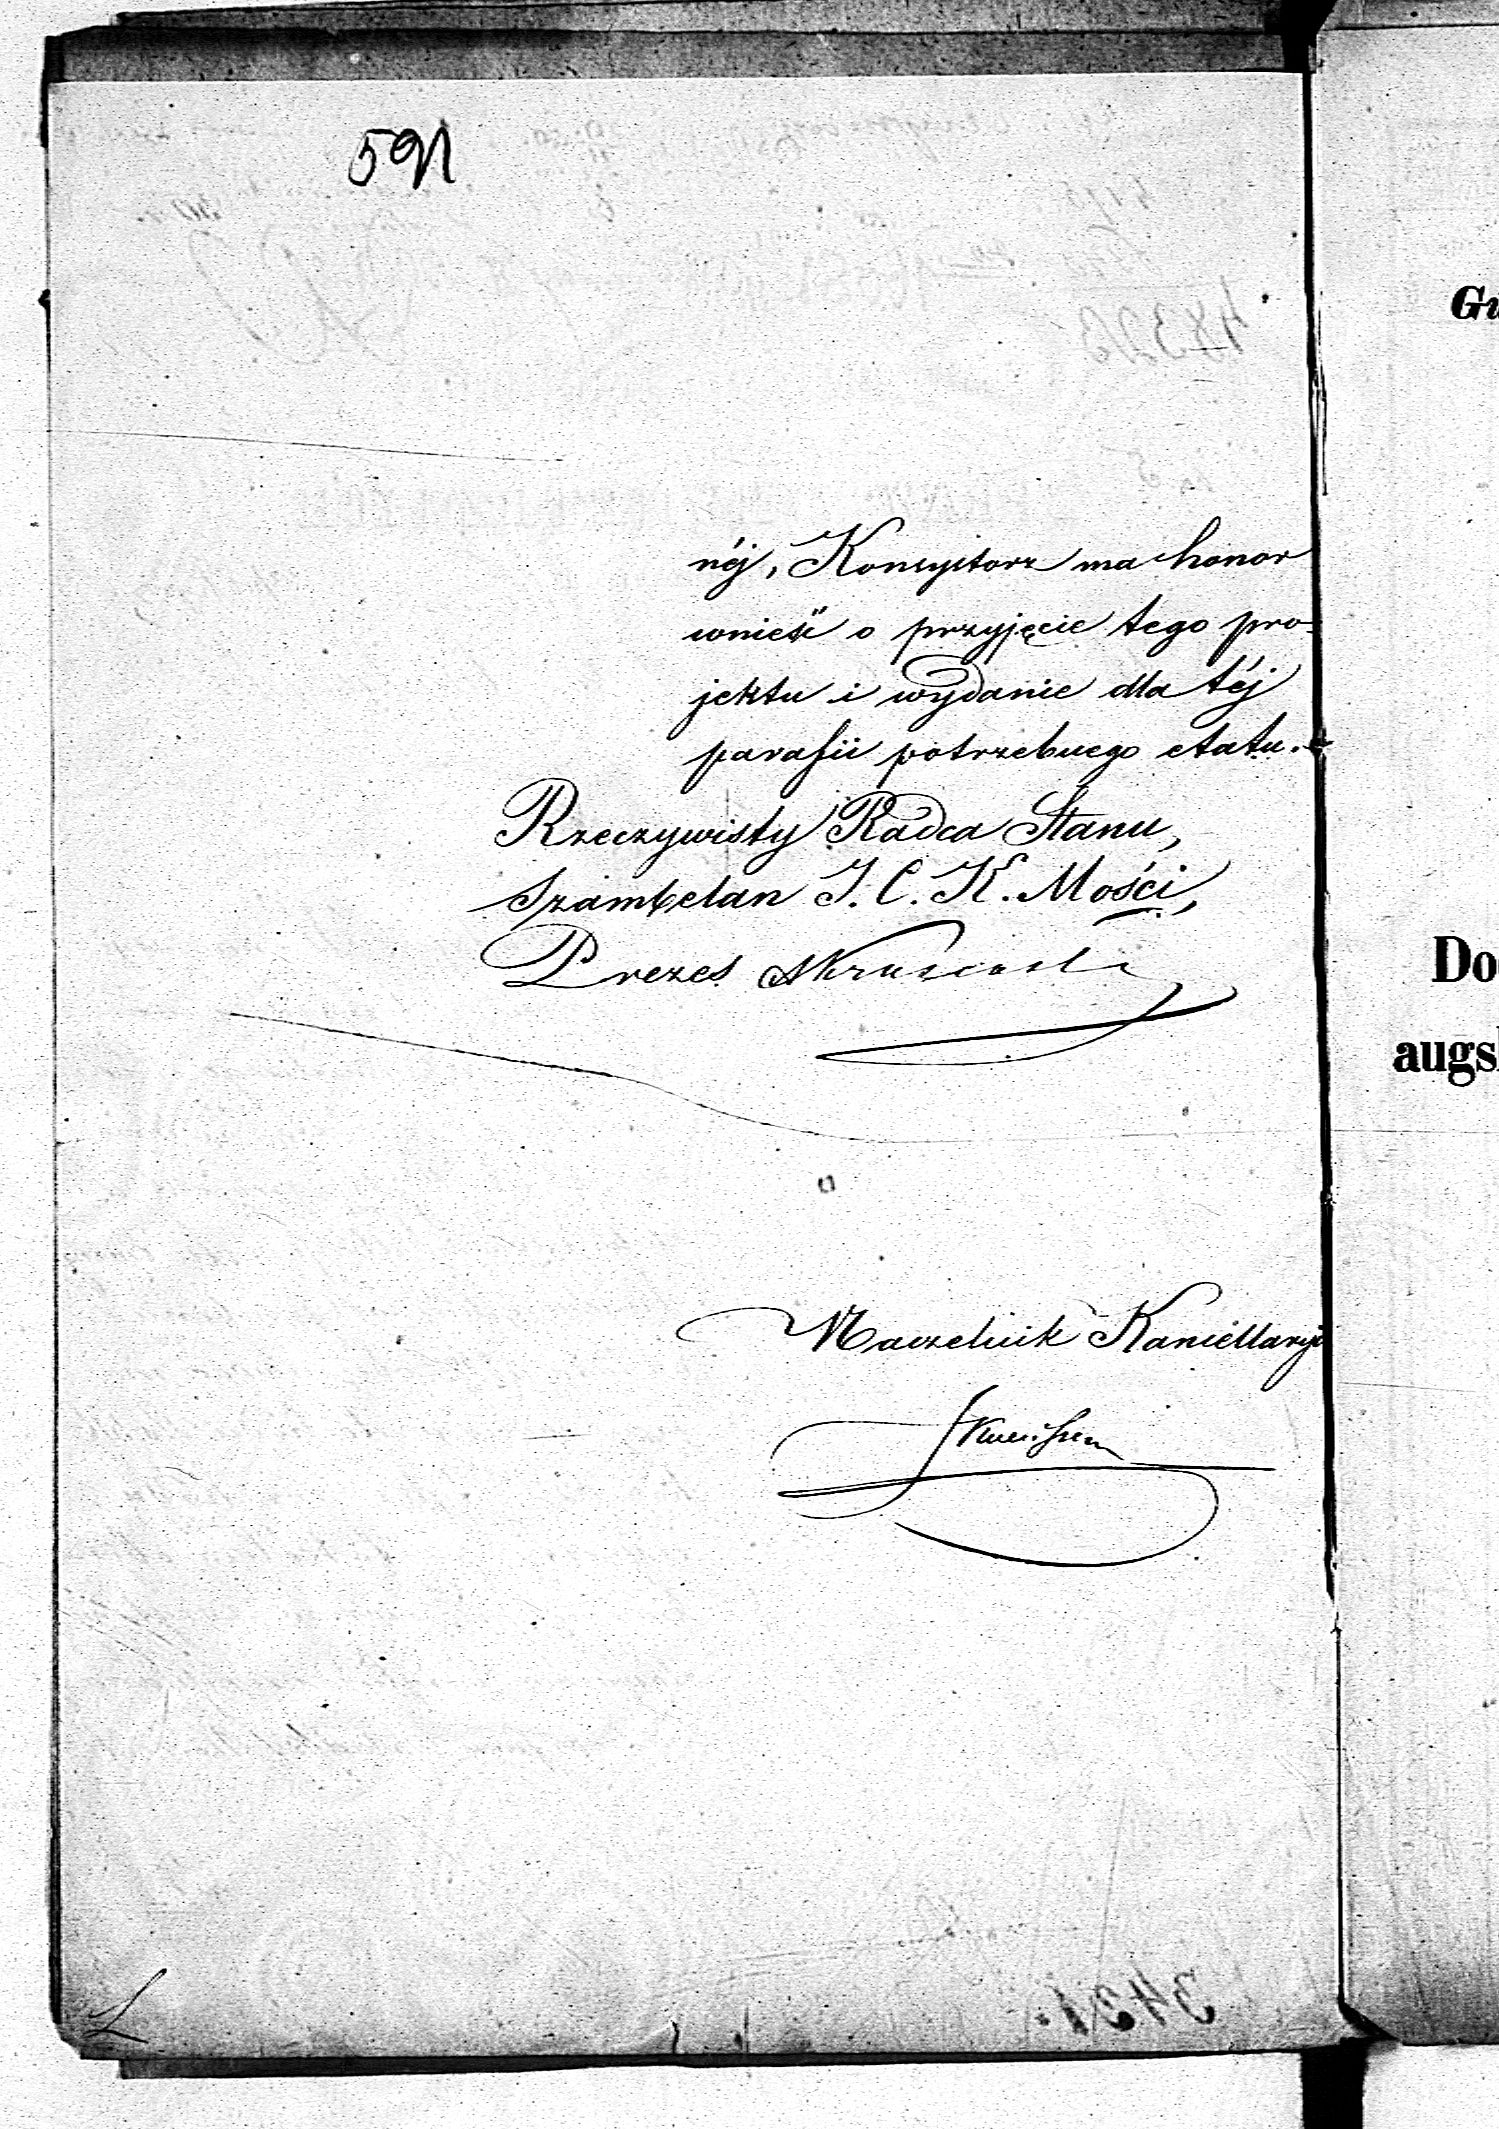 591
néj, Konsystorz ma honor
wnieść o przyjęcie tego pro-
jektu i wydanie dla téj
parafii potrzebnego etatu.
Rzeczywisty Radca Stanu,
Szambelan J. C. K. Mości,
Prezes
Naczelnik Kancellaryi
Gu
Do
augs